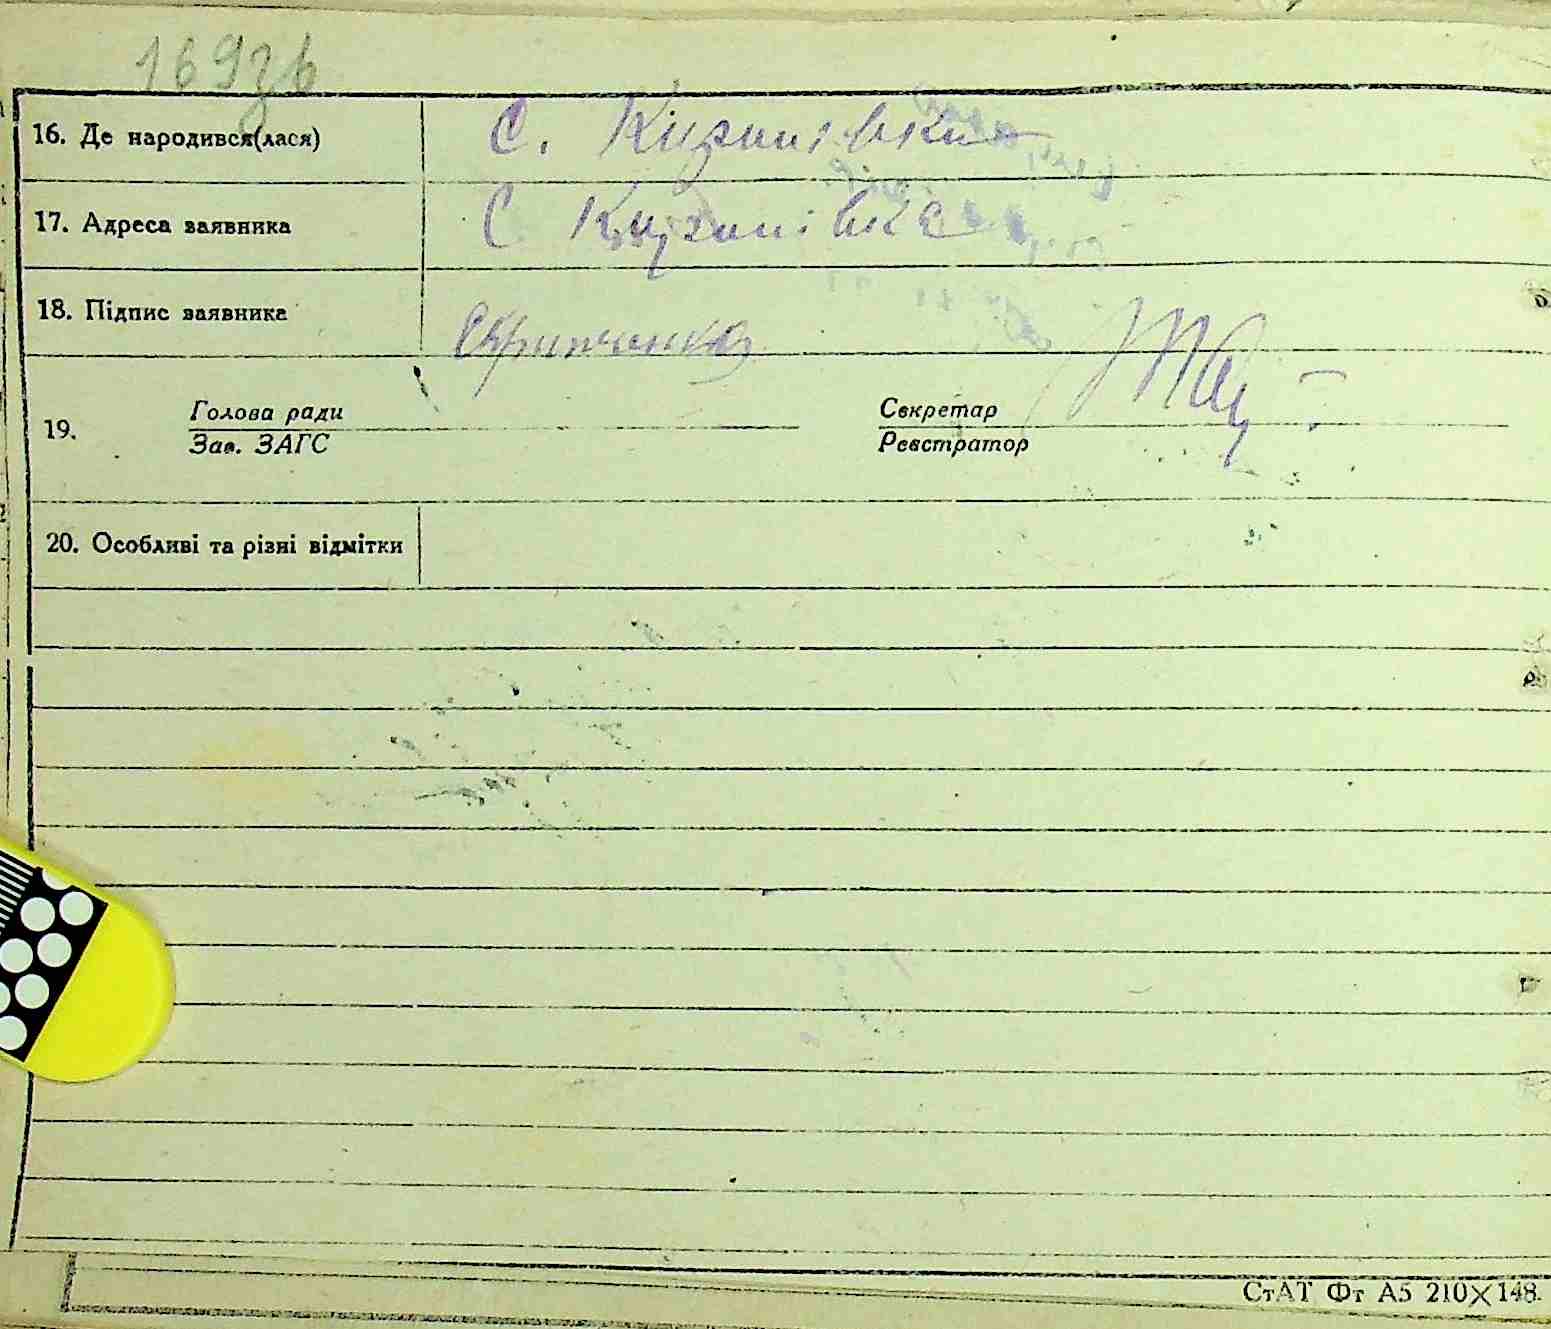 169зв
16. Де народився(лася) С. Кизимівка
17. Адреса заявника С Кизимівка
18. Підпис заявника
19. Голова ради Секретар
Зав. ЗАГС Реєстратор
20. Особливі та різні відмітки
СтАТ Фт А5 210×148.